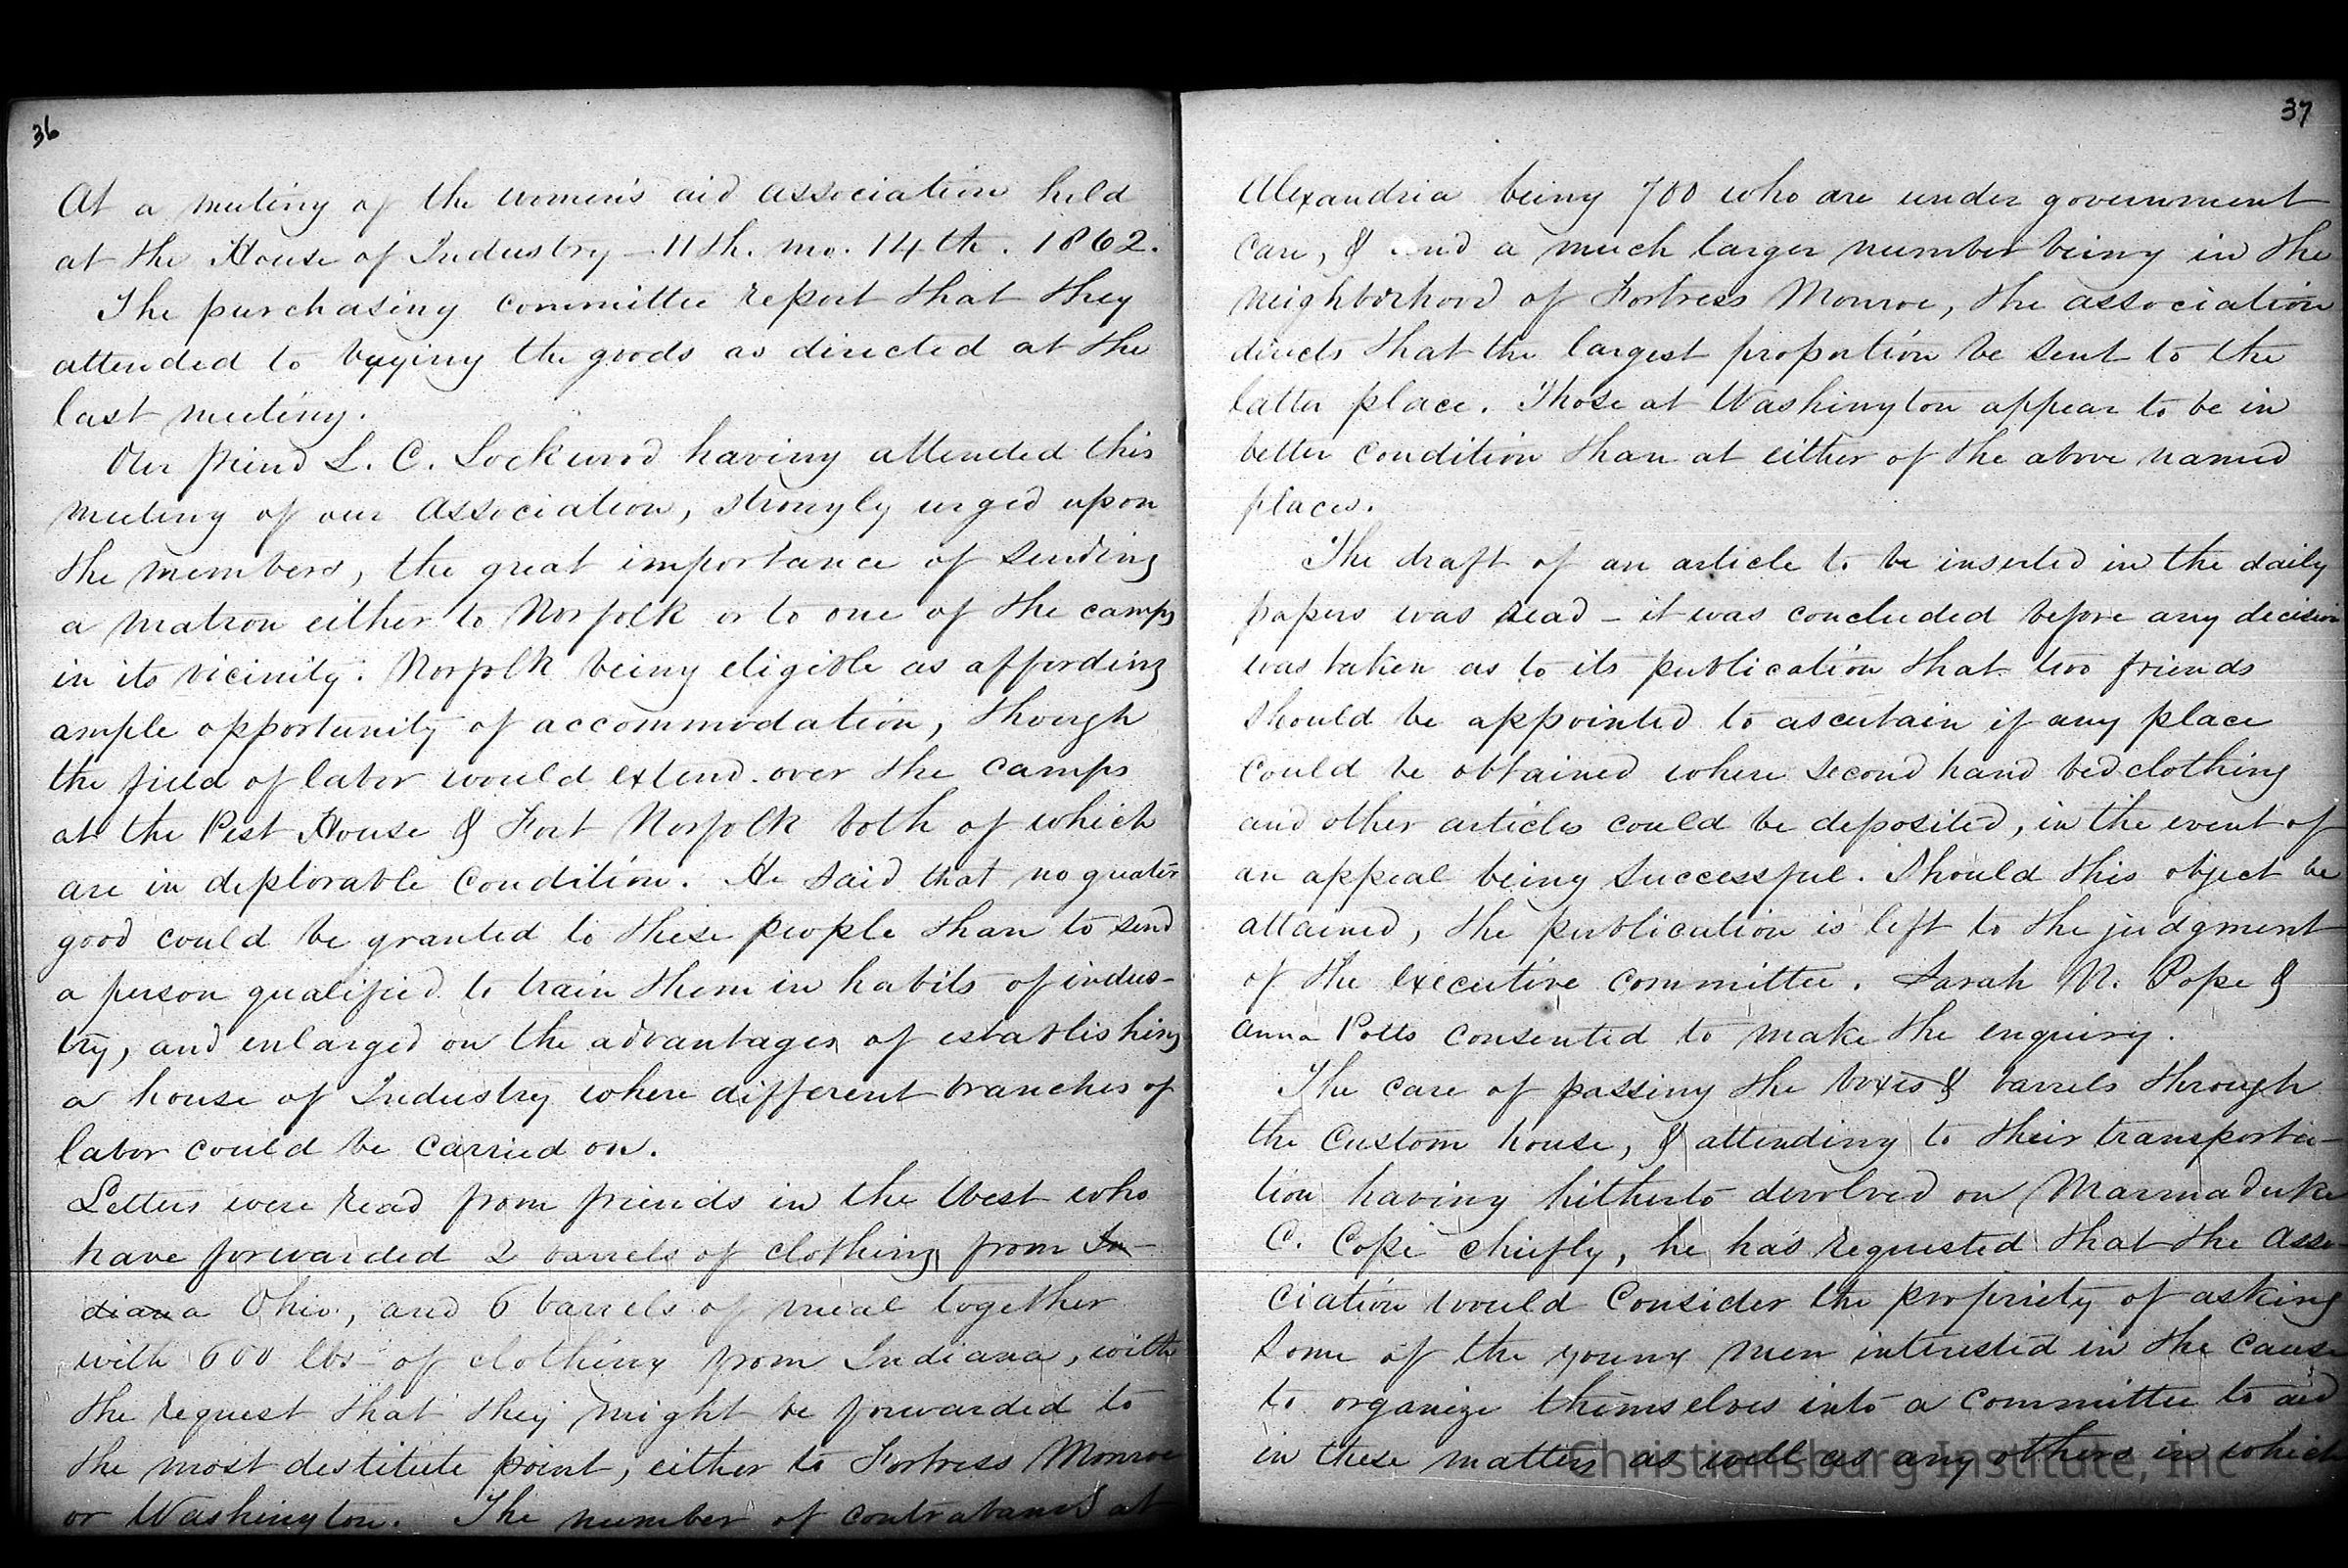 36
At a meeting of the women's aid association held
at the House of Industry - 11th. mo. 14th. 1862.
The purchasing committee report that they
attended to buying the goods as directed at the
last meeting.
Our friend L. C. Lockwood having attended this
meeting of our Association, strongly urged upon
the members, the great importance of sending
a matron either to Norfolk or to one of the camps
in its vicinity. Norfolk being eligible as affording
ample opportunity of accommodation, though
the field of labor would extend over the camps
at the Pest House & Fort Norfolk both of which
are in deplorable condition. He said that no greater
good could be granted to these people than to send
a person qualified to train them in habits of indus-
try, and enlarged on the advantages of establishing
a house of Industry where different branches of
labor could be carried on.
Letters were read from friends in the West who
have forwarded 2 barrels of clothing from In-
diana Ohio, and 6 barrels of meal together
with 600 lbs of clothing from Indiana, with
the request that they might be forwarded to
the most destitute point, either to Fortress Monroe
or Washington. The number of contrabands at
37
Alexandria being 700 who are under government
care, & and a much larger number being in the
neighborhood of Fortress Monroe, the association
directs that the largest proportion be sent to the
latter place. Those at Washington appear to be in
better condition than at either of the above named
places.
The draft of an article to be inserted in the daily
papers was read - it was concluded before any decision
was taken as to its publication that two friends
should be appointed to ascertain if any place
could be obtained where second hand bedclothing
and other articles could be deposited, in the event of
an appeal being successful. Should this object be
attained, the publication is left to the judgment
of the executive committee. Sarah N. Pope &
Anna Potts consented to make the enquiry.
The care of passing the boxes & barrels through
the Custom house, & attending to their transporta-
tion having hitherto devolved on Marmaduke
C. Cope chiefly, he has requested that the Asso-
ciation would Consider the propriety of asking
some of the young men interested in the cause
to organize themselves into a committee to aid
in these matters as well as any others in which
Christiansburg Institute, Inc